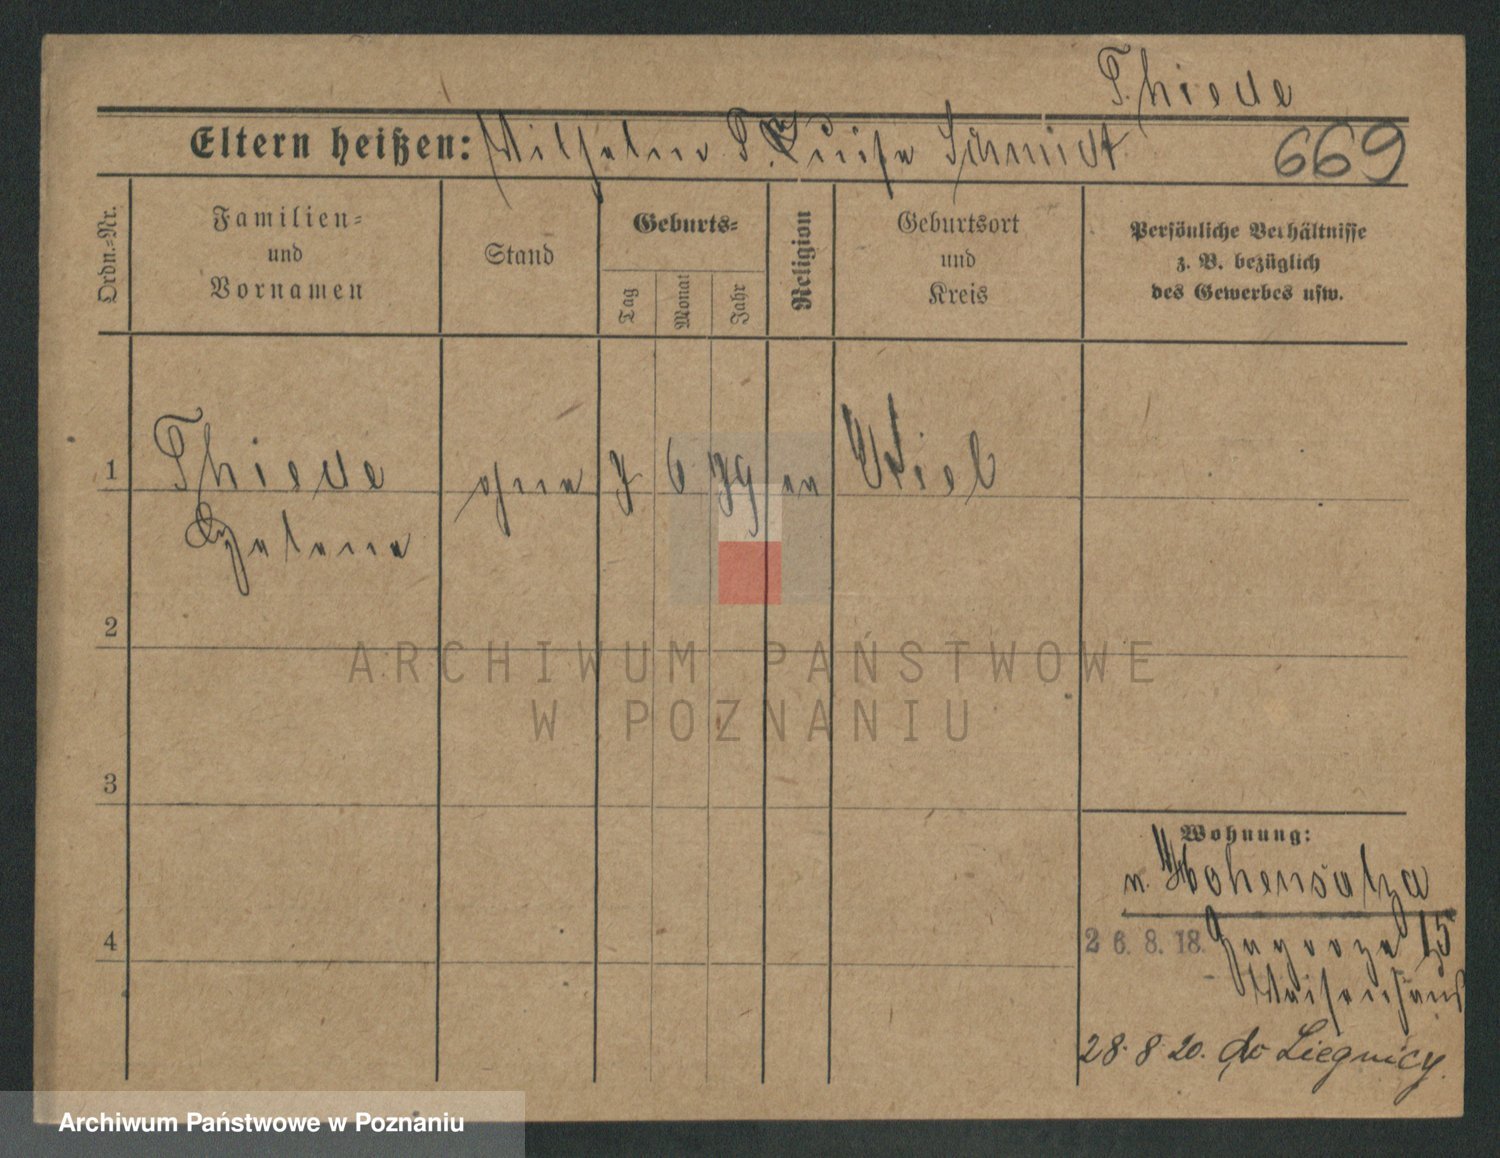 Thiede
Eltern heißen: Wilhelm T. Luise Schmidt
669
Ordn.-Nr.
Familien-
und
Vornamen
Stand
Geburts-
Tag
Monat
Jahr
Religion
Geburtsort
und
Kreis
Persönliche Verhältnisse
z. B. bezüglich
des Gewerbes usw.
1 Thiede ohne 7 6 79 ev Kiel
Helene
2
ARCHIWUM PAŃSTWOWE
W POZNANIU
3
Wohnung:
n. Hohensalza
4
26. 8. 18. 15
Waisenhaus
28. 8. 20. do Liegnicy.
Archiwum Państwowe w Poznaniu